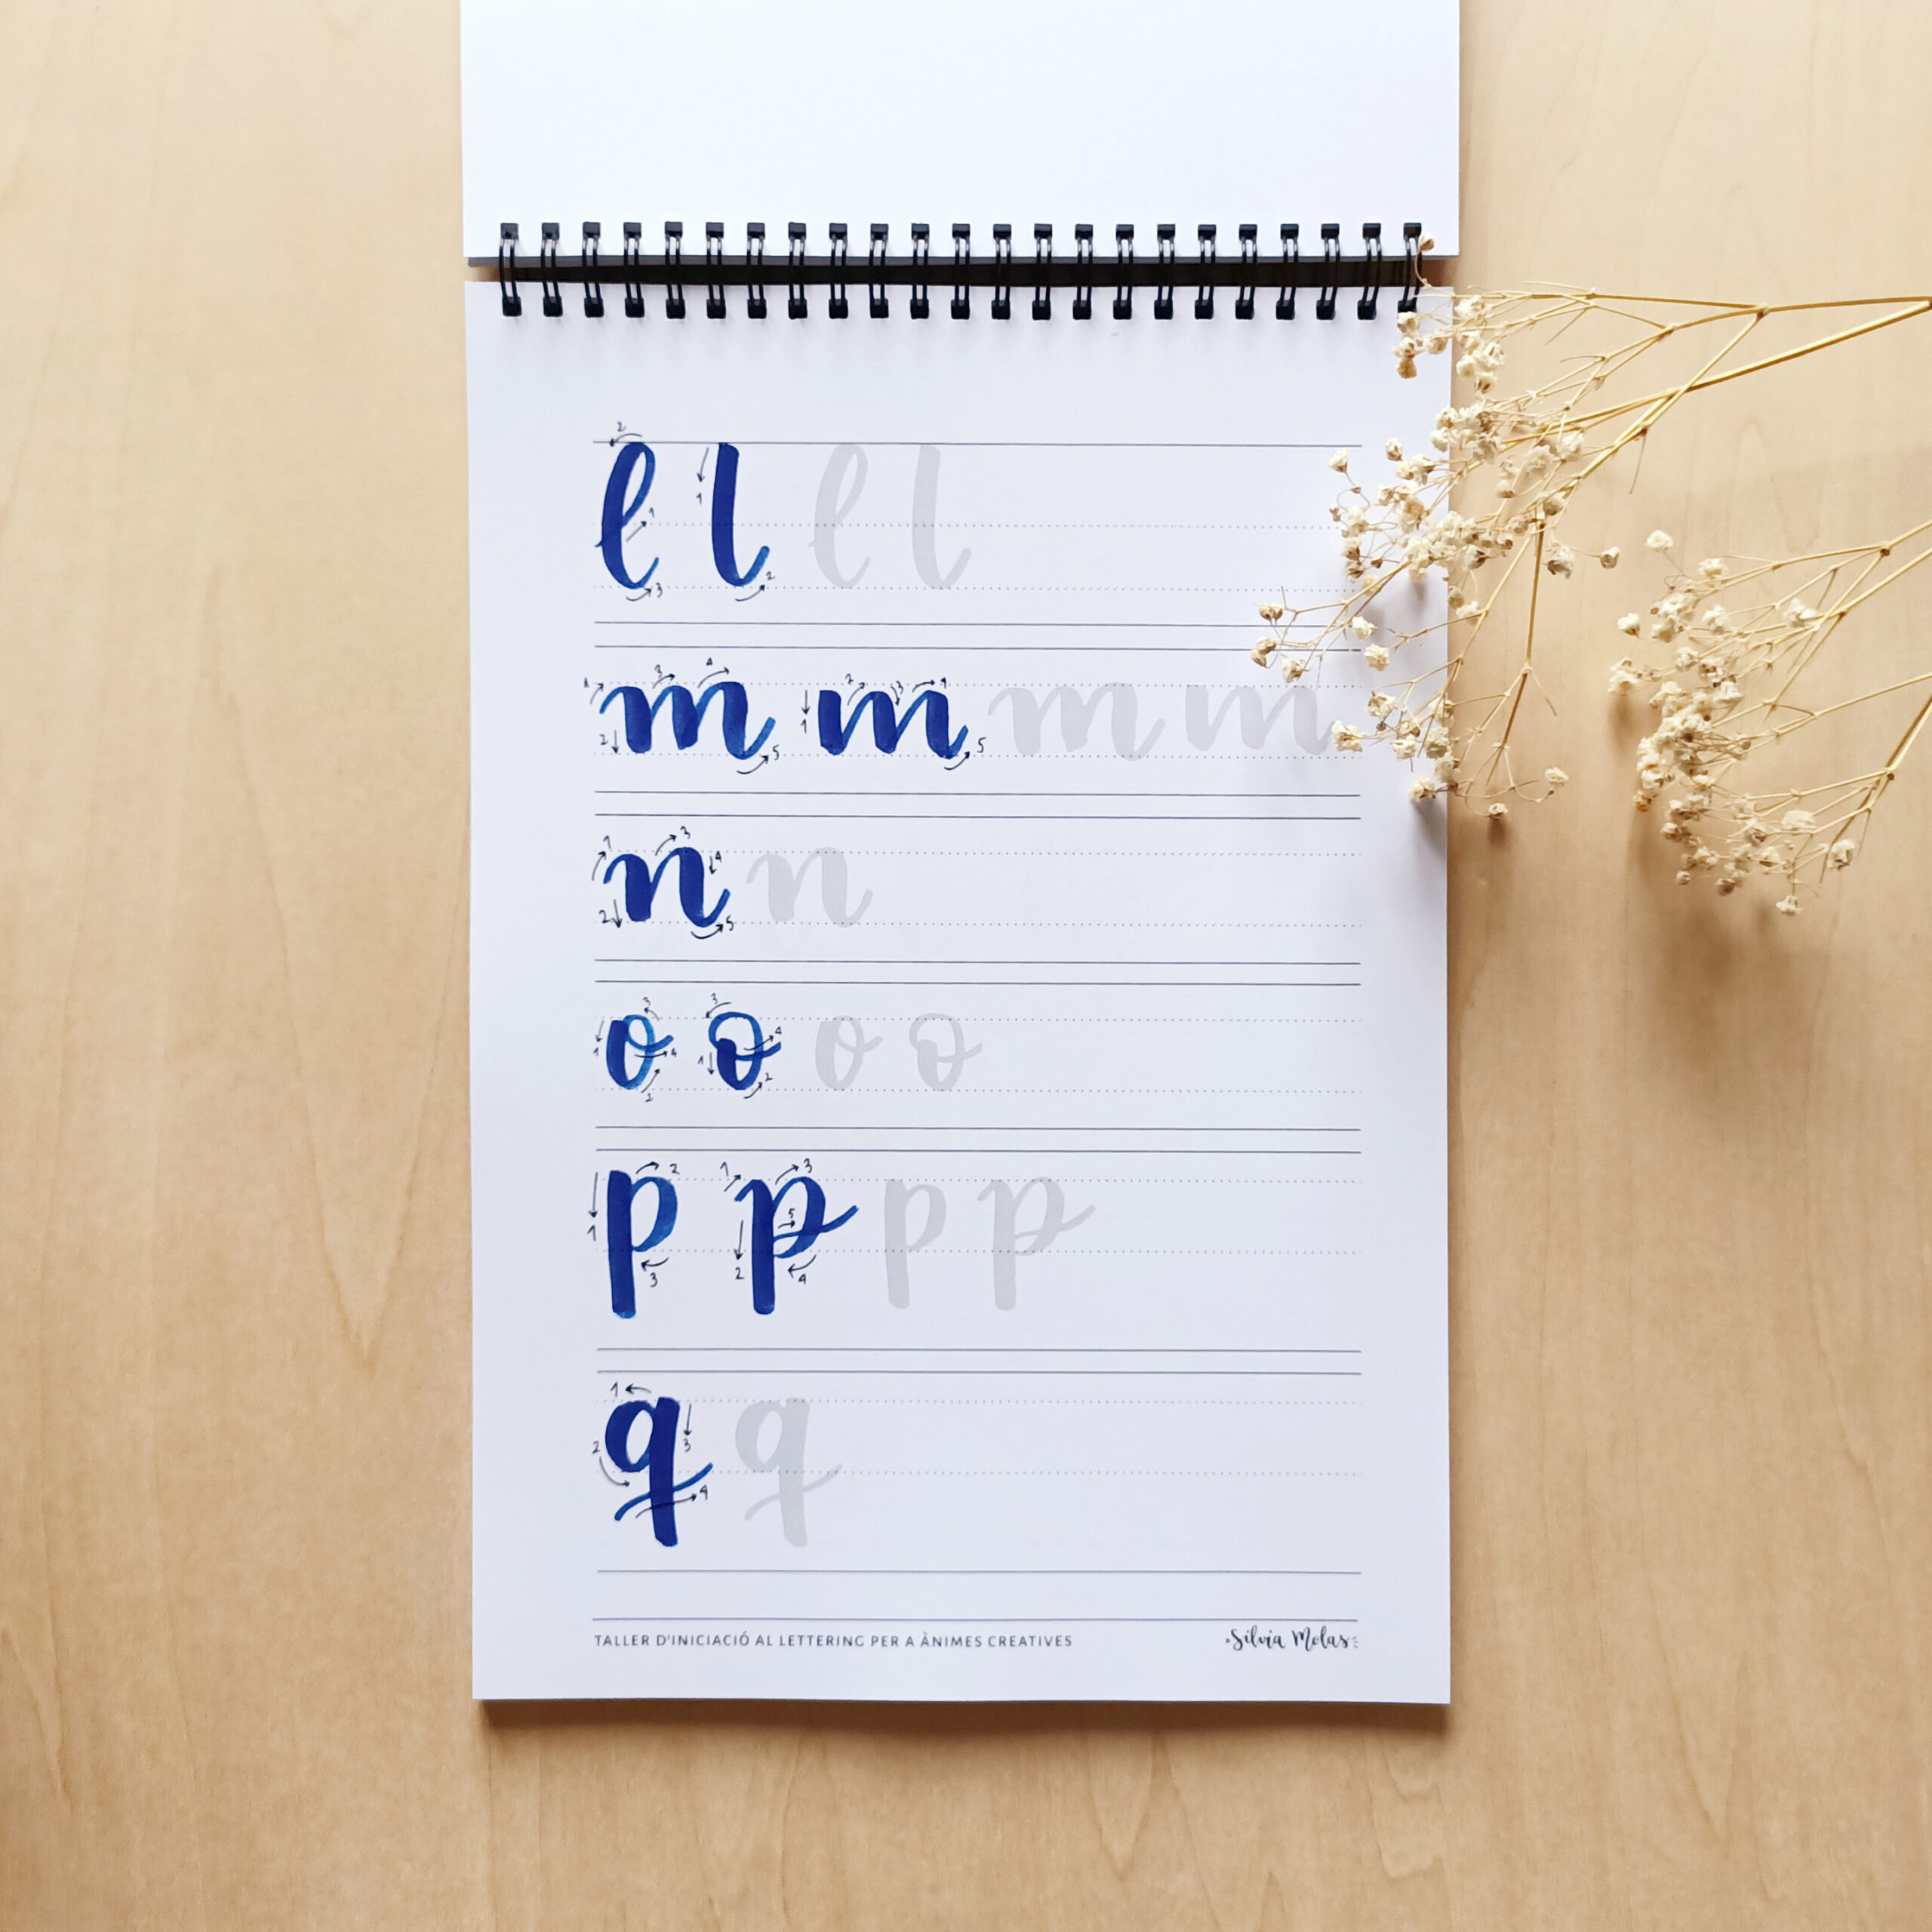 l l l l
m m m m
n n
o o o o
p p p p
q q
TALLER D'INICIACIÓ AL LETTERING PER A ÀNIMES CREATIVES
Silvia Molas